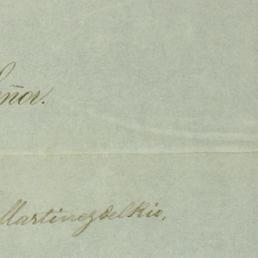 eñor.
Martinez del Rio,